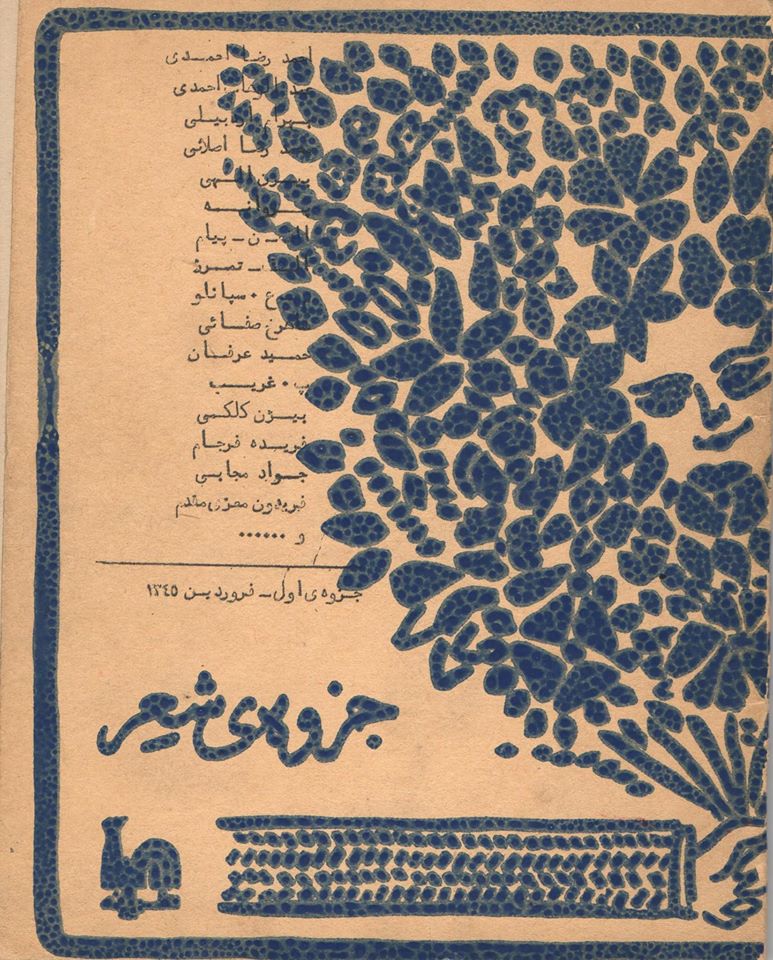 احمد رضا احمدی
احمدی
بهرام اردبیلی
رضا اصلانی
الهی
ن - پیام
ع . سپانلو
صفائی
حمید عرفان
پ . غریب
بیژن کلکی
فریده فرجام
جواد مجابی
فریدون معزی مقدم
و ......
جزوه ی اول - فروردین ۱۳٤۵
جزوه‌ی شعر